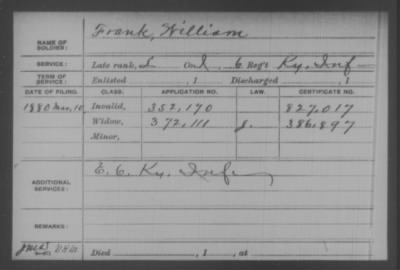 NAME OF SOLDIER: Frank, William
SERVICE: Late rank, S Co. I, 6 Reg't Ky. Inf
TERM OF SERVICE: Enlisted , 1 Discharged , 1
DATE OF FILING. CLASS. APPLICATION NO. LAW. CERTIFICATE NO.
1880 Mar, 10 Invalid, 352,170 827,017
Widow, 372,111 g. 386,897
Minor,
ADDITIONAL SERVICES: E. 6. Ky. Inf
REMARKS:
Died , 1 , at